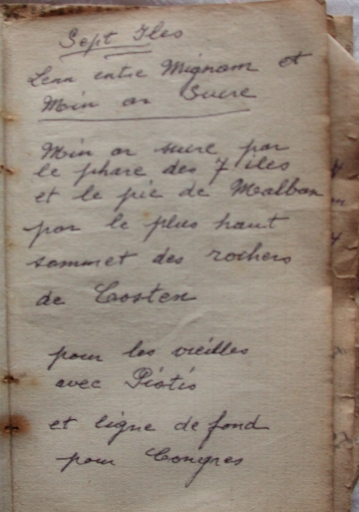 Sept Iles
Lenn entre Mignom et
Min ar Sucre
Min ar sucre par
le phare des 7 iles
et le pic de Malban
par le plus haut
sommet des rochers
de Costen
pour les vieilles
avec Piotis
et ligne de fond
pour Congres